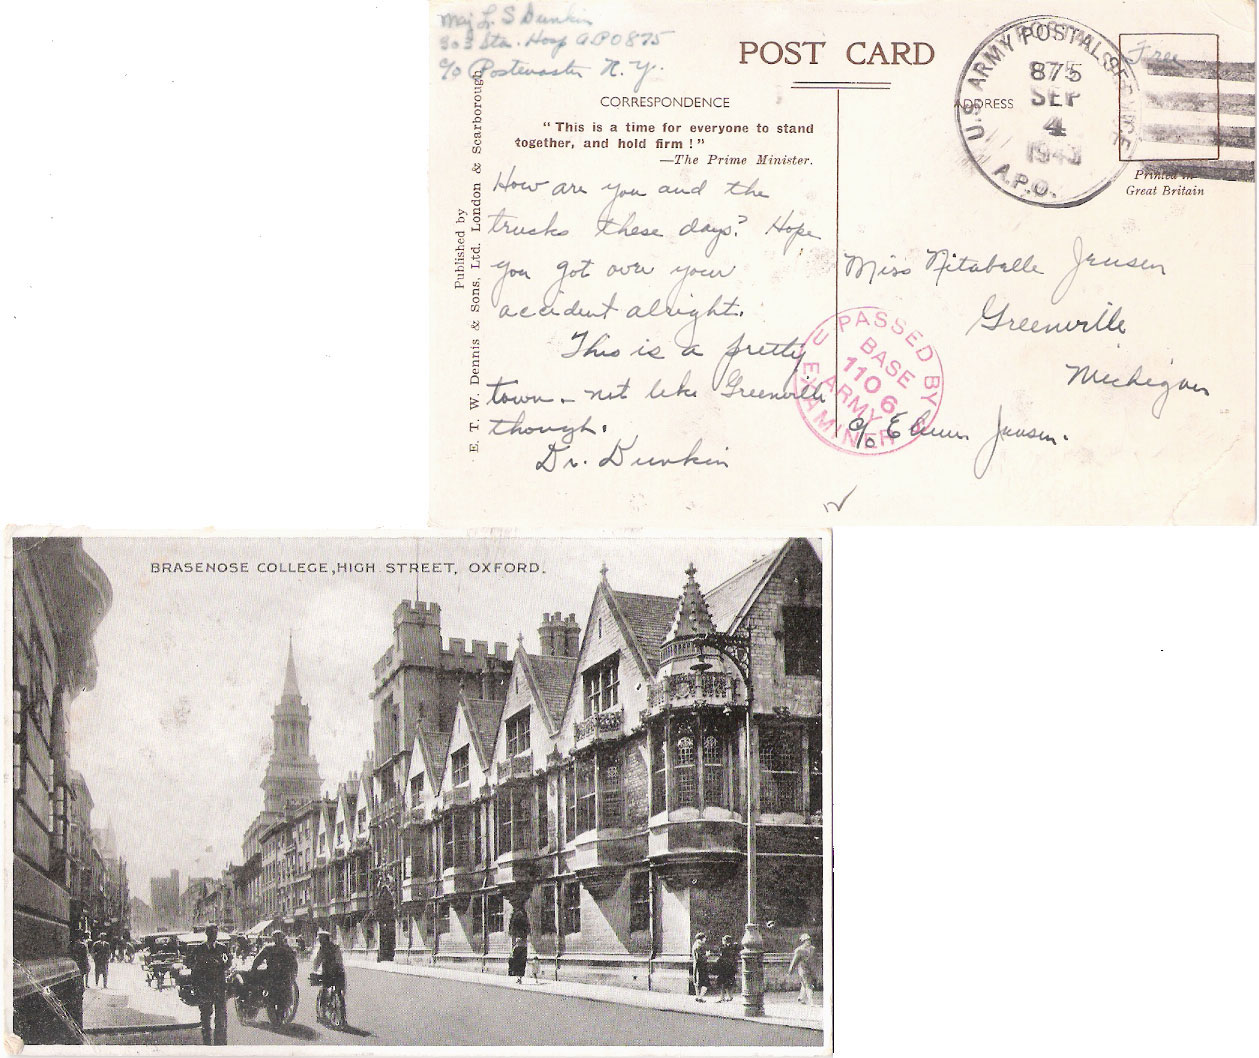 Maj L. S Dunkin
303 Sta. Hosp APO 875
c/o Postmaster N. Y.
POST CARD
CORRESPONDENCE
"This is a time for everyone to stand
together, and hold firm !"
—The Prime Minister.
How are you and the
trucks these days? Hope
you got over your
accident alright.
This is a pretty
town - not like Greenville
though.
Dr. Dunkin
Published by
E. T. W. Dennis & Sons, Ltd. London & Scarborough
ADDRESS
U.S. ARMY POSTAL SERVICE
875
SEP
4
1943
A.P.O.
Free
Printed in
Great Britain
Miss Nitabelle Jensen
Greenville
Michigan
c/o Elmer Jensen.
PASSED BY
BASE
1106
ARMY
EXAMINER
BRASENOSE COLLEGE, HIGH STREET, OXFORD.